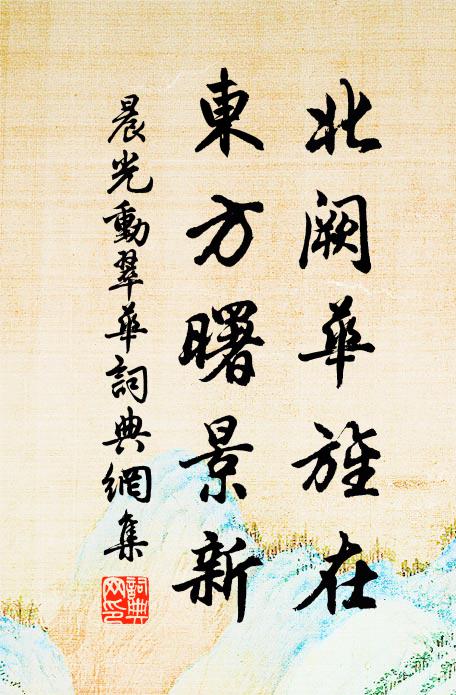 北闕華旌在
東方曙景新
晨光動翠華詞典網集
詞典網印